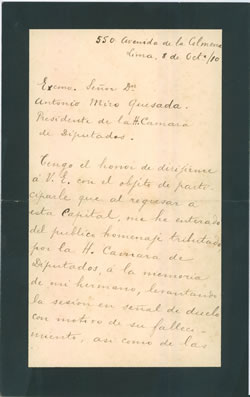 550 Avenida de la Colmena
Lima, 8 de Oct.e/10
Excmo. Señor Dn
Antonio Miro Quesada.
Presidente de la H. Camara
de Diputados.
Tengo el honor de dirijirme
á V. E. con el objeto de parti-
ciparle que al regresar a
esta Capital, me he enterado
del publico homenaje tributado
por la H. Camara de
Diputados, á la memoria
de mi hermano, levantando
la sesión en señal de duelo
con motivo de su falleci-
miento, asi como de las